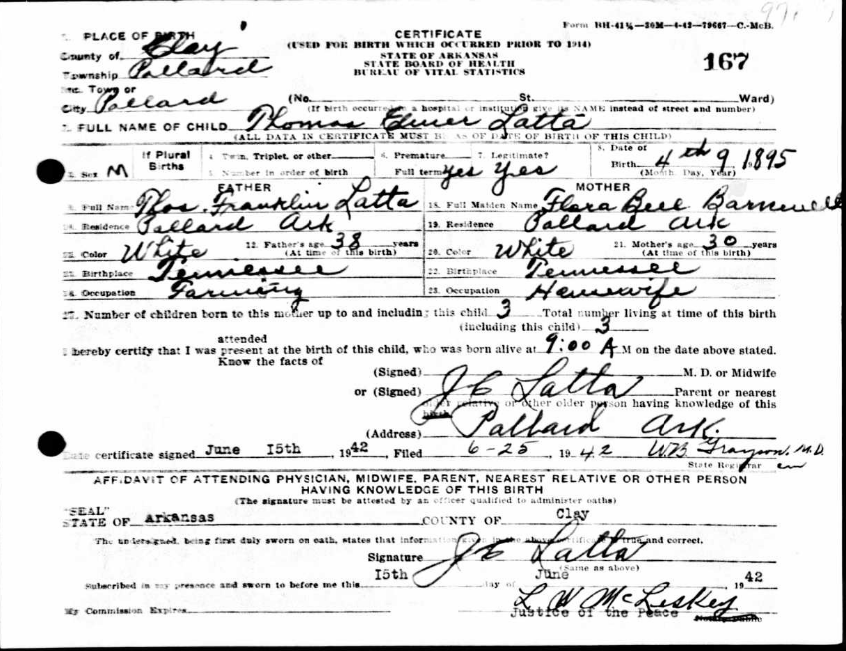 Form BH-41¼—30M—4-42—79667—C.-McB.
1. PLACE OF BIRTH
CERTIFICATE
(USED FOR BIRTH WHICH OCCURRED PRIOR TO 1914)
County of Clay
STATE OF ARKANSAS
STATE BOARD OF HEALTH
167
Township Pollard
BUREAU OF VITAL STATISTICS
Inc. Town or
City Pollard (No. St. Ward)
(If birth occurred in a hospital or institution give its NAME instead of street and number)
2. FULL NAME OF CHILD Thomas Elmer Latta
(ALL DATA IN CERTIFICATE MUST BE AS OF DATE OF BIRTH OF THIS CHILD)
3. Sex M If Plural Births 4. Twin, Triplet, or other 6. Premature 7. Legitimate? 8. Date of
5. Number in order of birth Full term Yes Yes Birth 4th 9 1895
(Month Day, Year)
FATHER MOTHER
9. Full Name Thos. Franklin Latta 18. Full Maiden Name Flora Bell Barnwell
10. Residence Pollard Ark 19. Residence Pollard Ark
11. Color White 12. Father's age 38 years 20. Color White 21. Mother's age 30 years
(At time of this birth) (At time of this birth)
Birthplace Tennessee 22. Birthplace Tennessee
Occupation Farming 23. Occupation Housewife
27. Number of children born to this mother up to and including this child 3 Total number living at time of this birth
(including this child) 3
attended
I hereby certify that I was present at the birth of this child, who was born alive at 9:00 A M on the date above stated.
Know the facts of
(Signed) M. D. or Midwife
or (Signed) J C Latta Parent or nearest
relative or other older person having knowledge of this
birth
(Address) Pollard Ark.
Date certificate signed June 15th, 1942, Filed 6-25, 1942 WB Grayson, M.D.
State Registrar
AFFIDAVIT OF ATTENDING PHYSICIAN, MIDWIFE, PARENT, NEAREST RELATIVE OR OTHER PERSON
HAVING KNOWLEDGE OF THIS BIRTH
(The signature must be attested by an officer qualified to administer oaths)
"SEAL"
STATE OF Arkansas COUNTY OF Clay
The undersigned, being first duly sworn on oath, states that information given in the above certificate is true and correct.
Signature J C Latta
(Same as above)
Subscribed in my presence and sworn to before me this 15th day of June 1942
L W McLeskey
My Commission Expires Justice of the Peace Notary Public